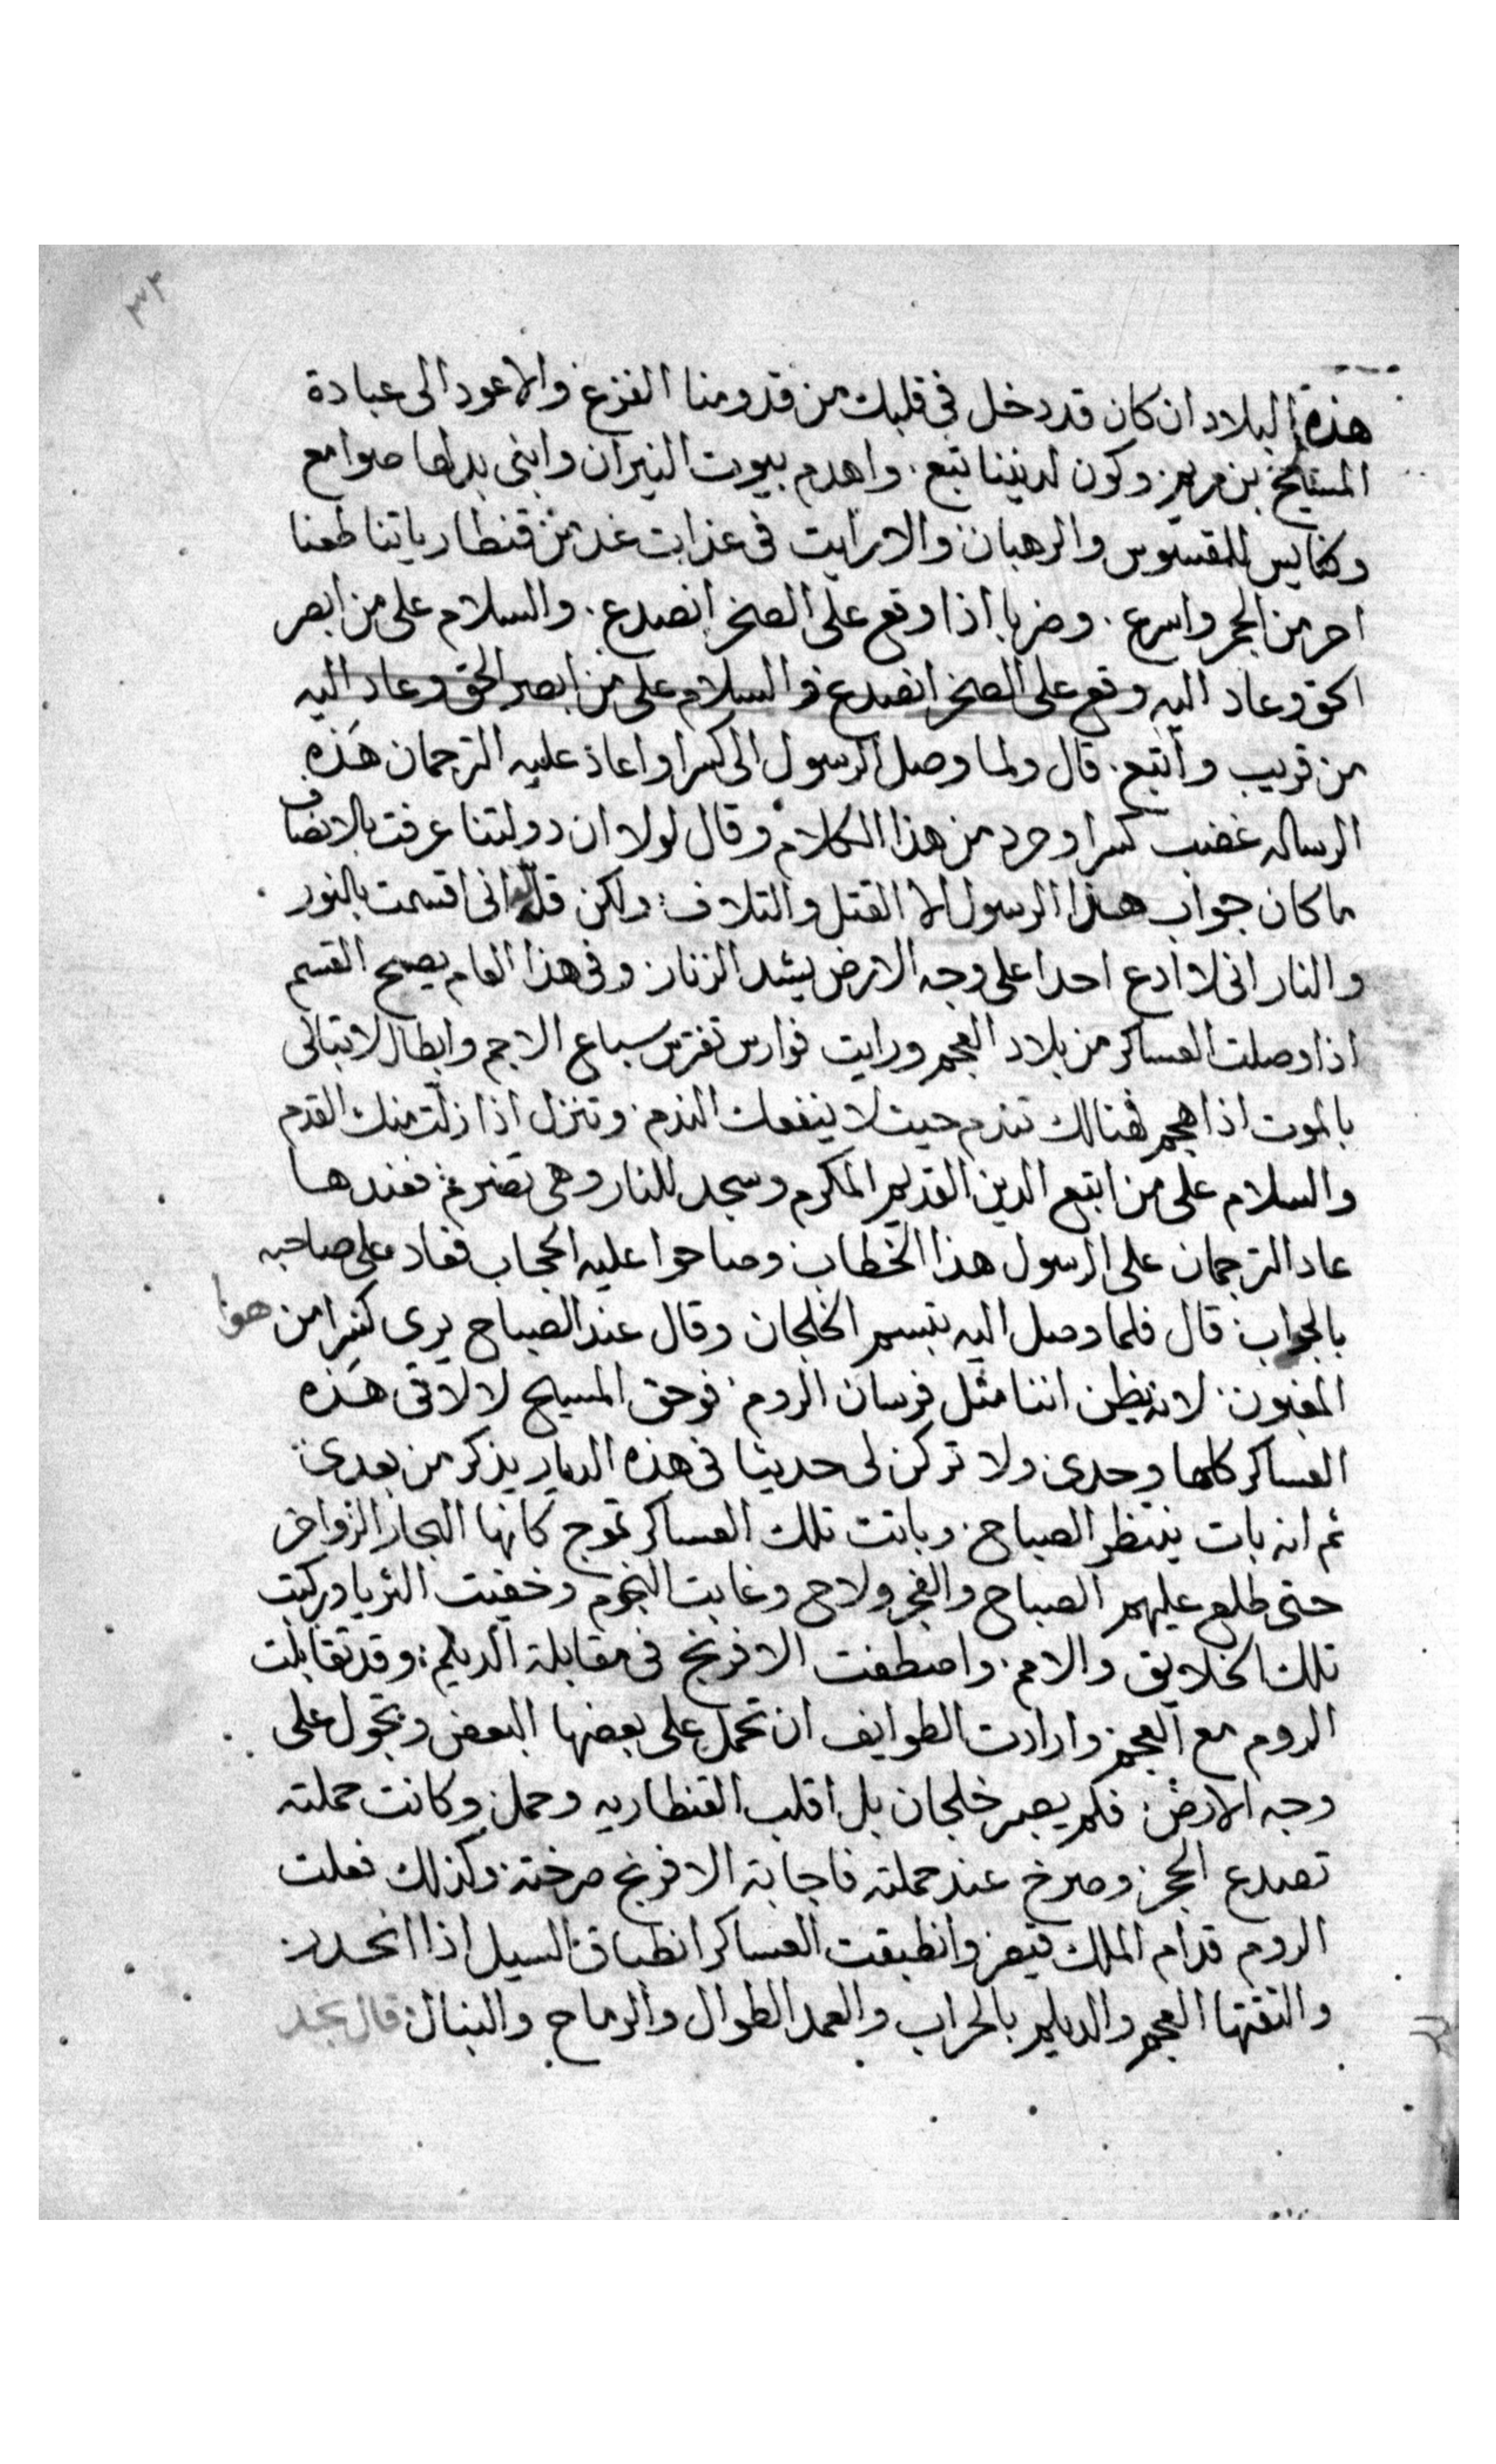 ٣٤
هذه البلاد ان كان قد دخل في قلبك من قدومنا الفزع والا عود الى عبادة
المسايح بن مريم وكون لديننا تبع. واهدم بيوت النيران وابني بدلها صوامع
وكنايس للقسوس والرهبان والا رايت في غداة غد من قنطارياتنا طعنا
احر من الجمر واسرع. وضربا اذا وقع على الصخر انصدع. والسلام على من ابصر
الحق وعاد اليه وقع على الصخر انصدع والسلام على من ابصر الحق وعاد اليه
من قريب واتبع. قال ولما وصل الرسول الى كسرا واعاد عليه الترجمان هذه
الرساله غضب كسرا وحرد من هذا الكلام وقال لولا ان دولتنا عرفت بالانصاف
ما كان جواب هذا الرسول الا القتل والتلاف: ولكن قل انى اقسمت بالنور
والنار انى لا ادع احدا على وجه الارض يشد الزنار وفى هذا العام يصح القسم
اذا وصلت العساكر من بلاد العجم ورايت فوارس تفترس سباع الاجم وابطال لا تبالى
بالموت اذا هجم فهنالك تندم حيث لا ينفعك الندم. وتنزل اذا زلت منك القدم
والسلام على من اتبع الدين القديم المكرم وسجد للنار وهى تضرم: فعندها
عاد الترجمان على الرسول هذا الخطاب وصاحوا عليه الحجاب فعاد على صاحبه
بالجواب: قال فلما وصل اليه تبسم الخلجان وقال عند الصباح يرى كسرا من هوا
المغبون: لانه يظن اننا مثل فرسان الروم: فوحق المسيح لا لاقى هذه
العساكر كلها وحدى ولا تركن لى حديثا فى هذه الديار يذكر من بعدى:
ثم انه بات ينتظر الصباح: وباتت تلك العساكر تموج كانها البحار الزواخر
حتى طلع عليهم الصباح والفجر ولاح وغابت النجوم وخفيت الثريا وركبت
تلك الخلايق والامم. واصطفت الافرنج فى مقابلة الديلم: وقد تقابلت
الروم مع العجم وارادت الطوايف ان تحمل على بعضها البعض وتجول على
وجه الارض: فلم يصبر خلجان بل اقلب القنطاريه وحمل وكانت حملته
تصدع الحجر: وصرخ عند حملته فاجابته الافرنج صرخته وكذلك فعلت
الروم قدام الملك قيصر وانطبقت العساكر انطباق السيل اذا انحدر:
والتقتها العجم والديلم بالحراب والعمد الطوال والرماح والنبال: قال نجد